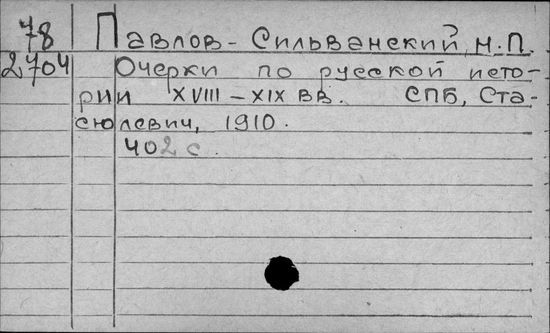 78 Павлов-Сильванский, Н.П.
2704 Очерки по русской исто-
рии XVIII-XIX вв. СПБ, Ста-
сюлевич, 1910.
402 с.